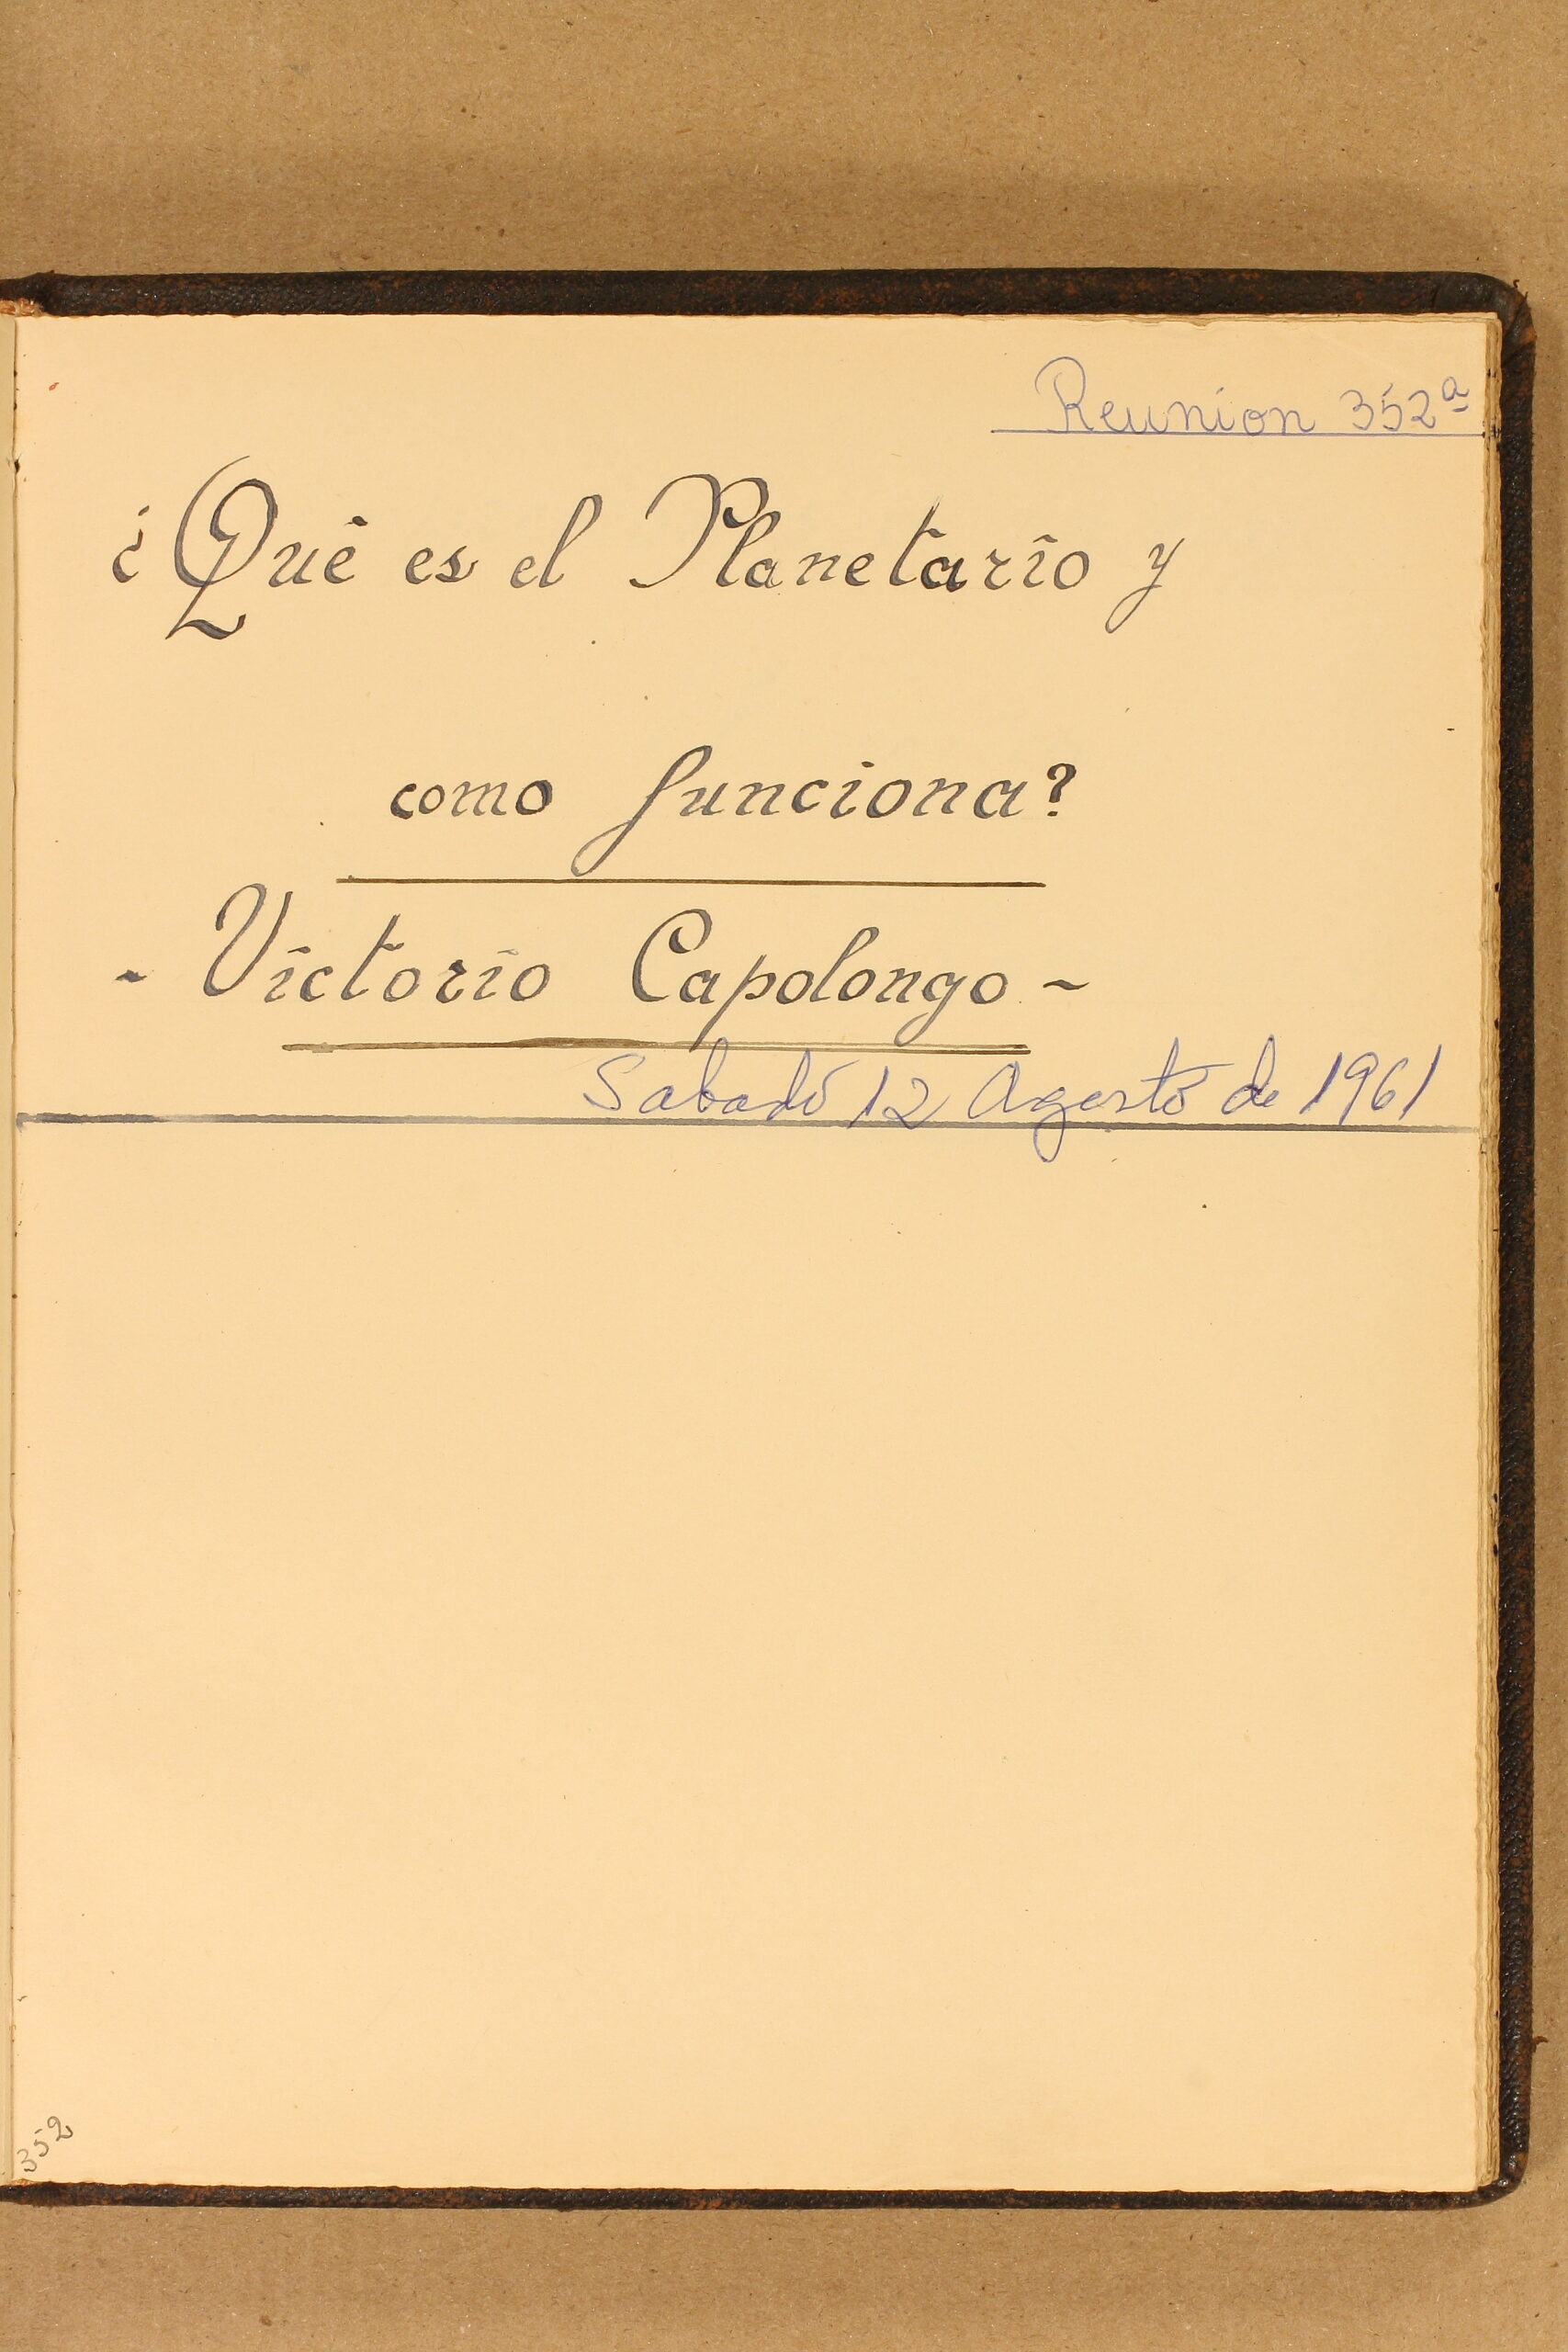 Reunion 352ª
¿Qué es el Planetario y
como funciona?
- Victorio Capolongo -
Sabado 12 Agosto de 1961
352